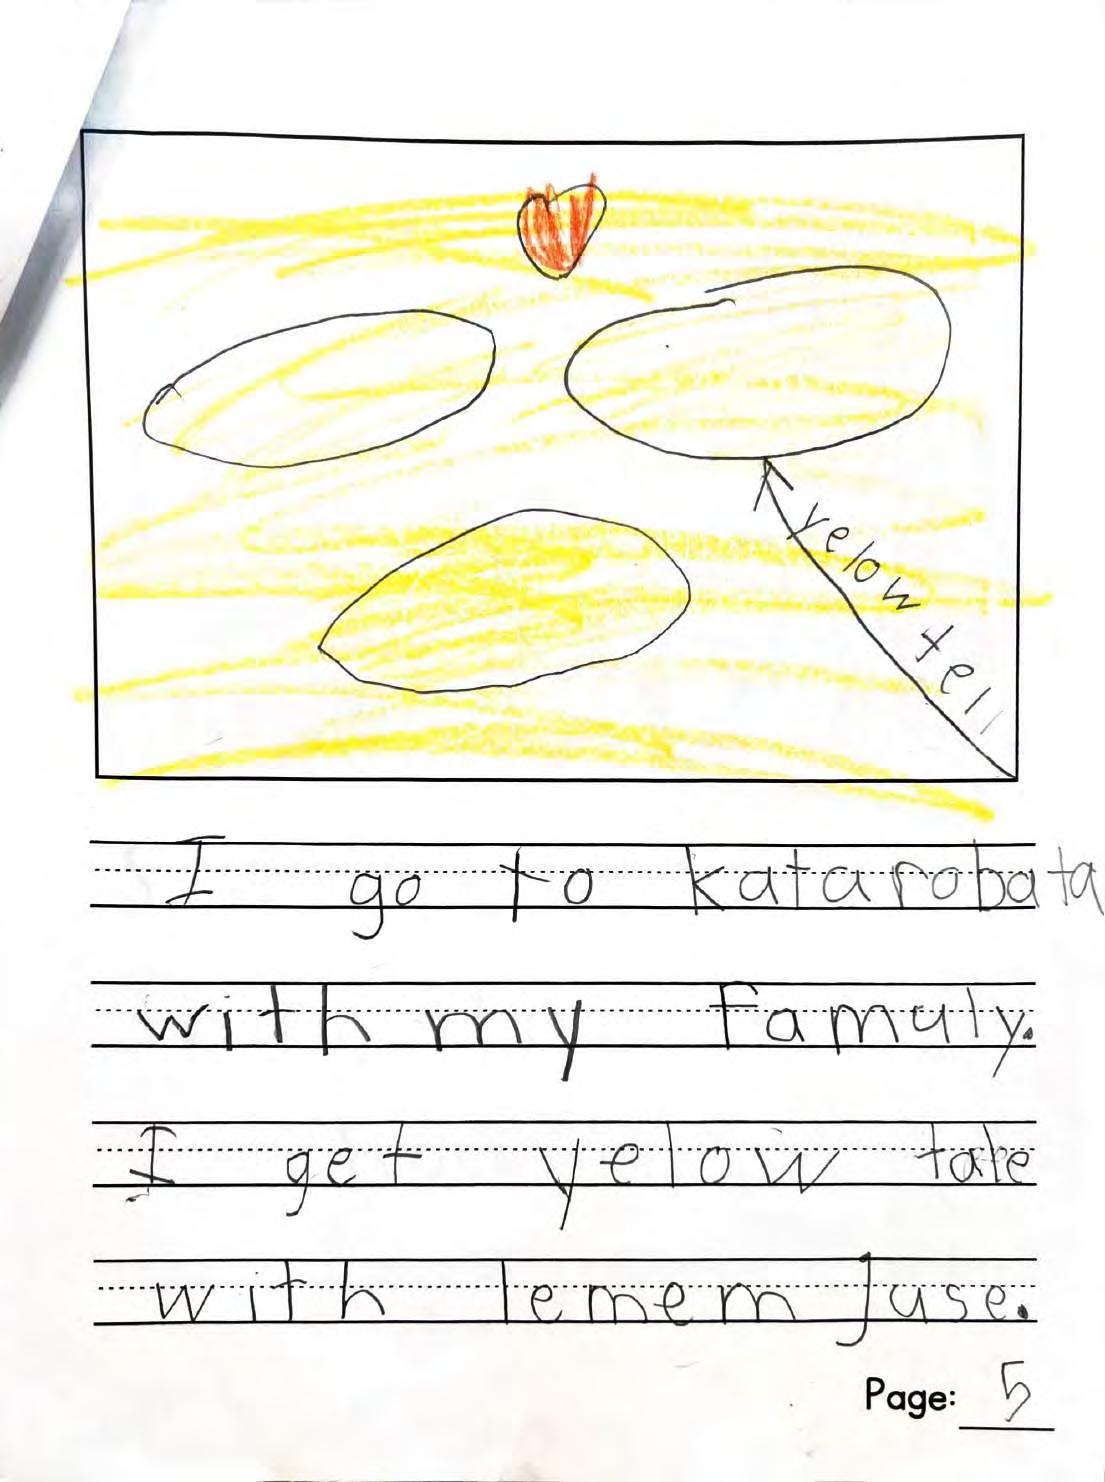 yelow tell
I go to katarobata
with my famuly.
I get yelow tale
with lemem juse.
Page: 5